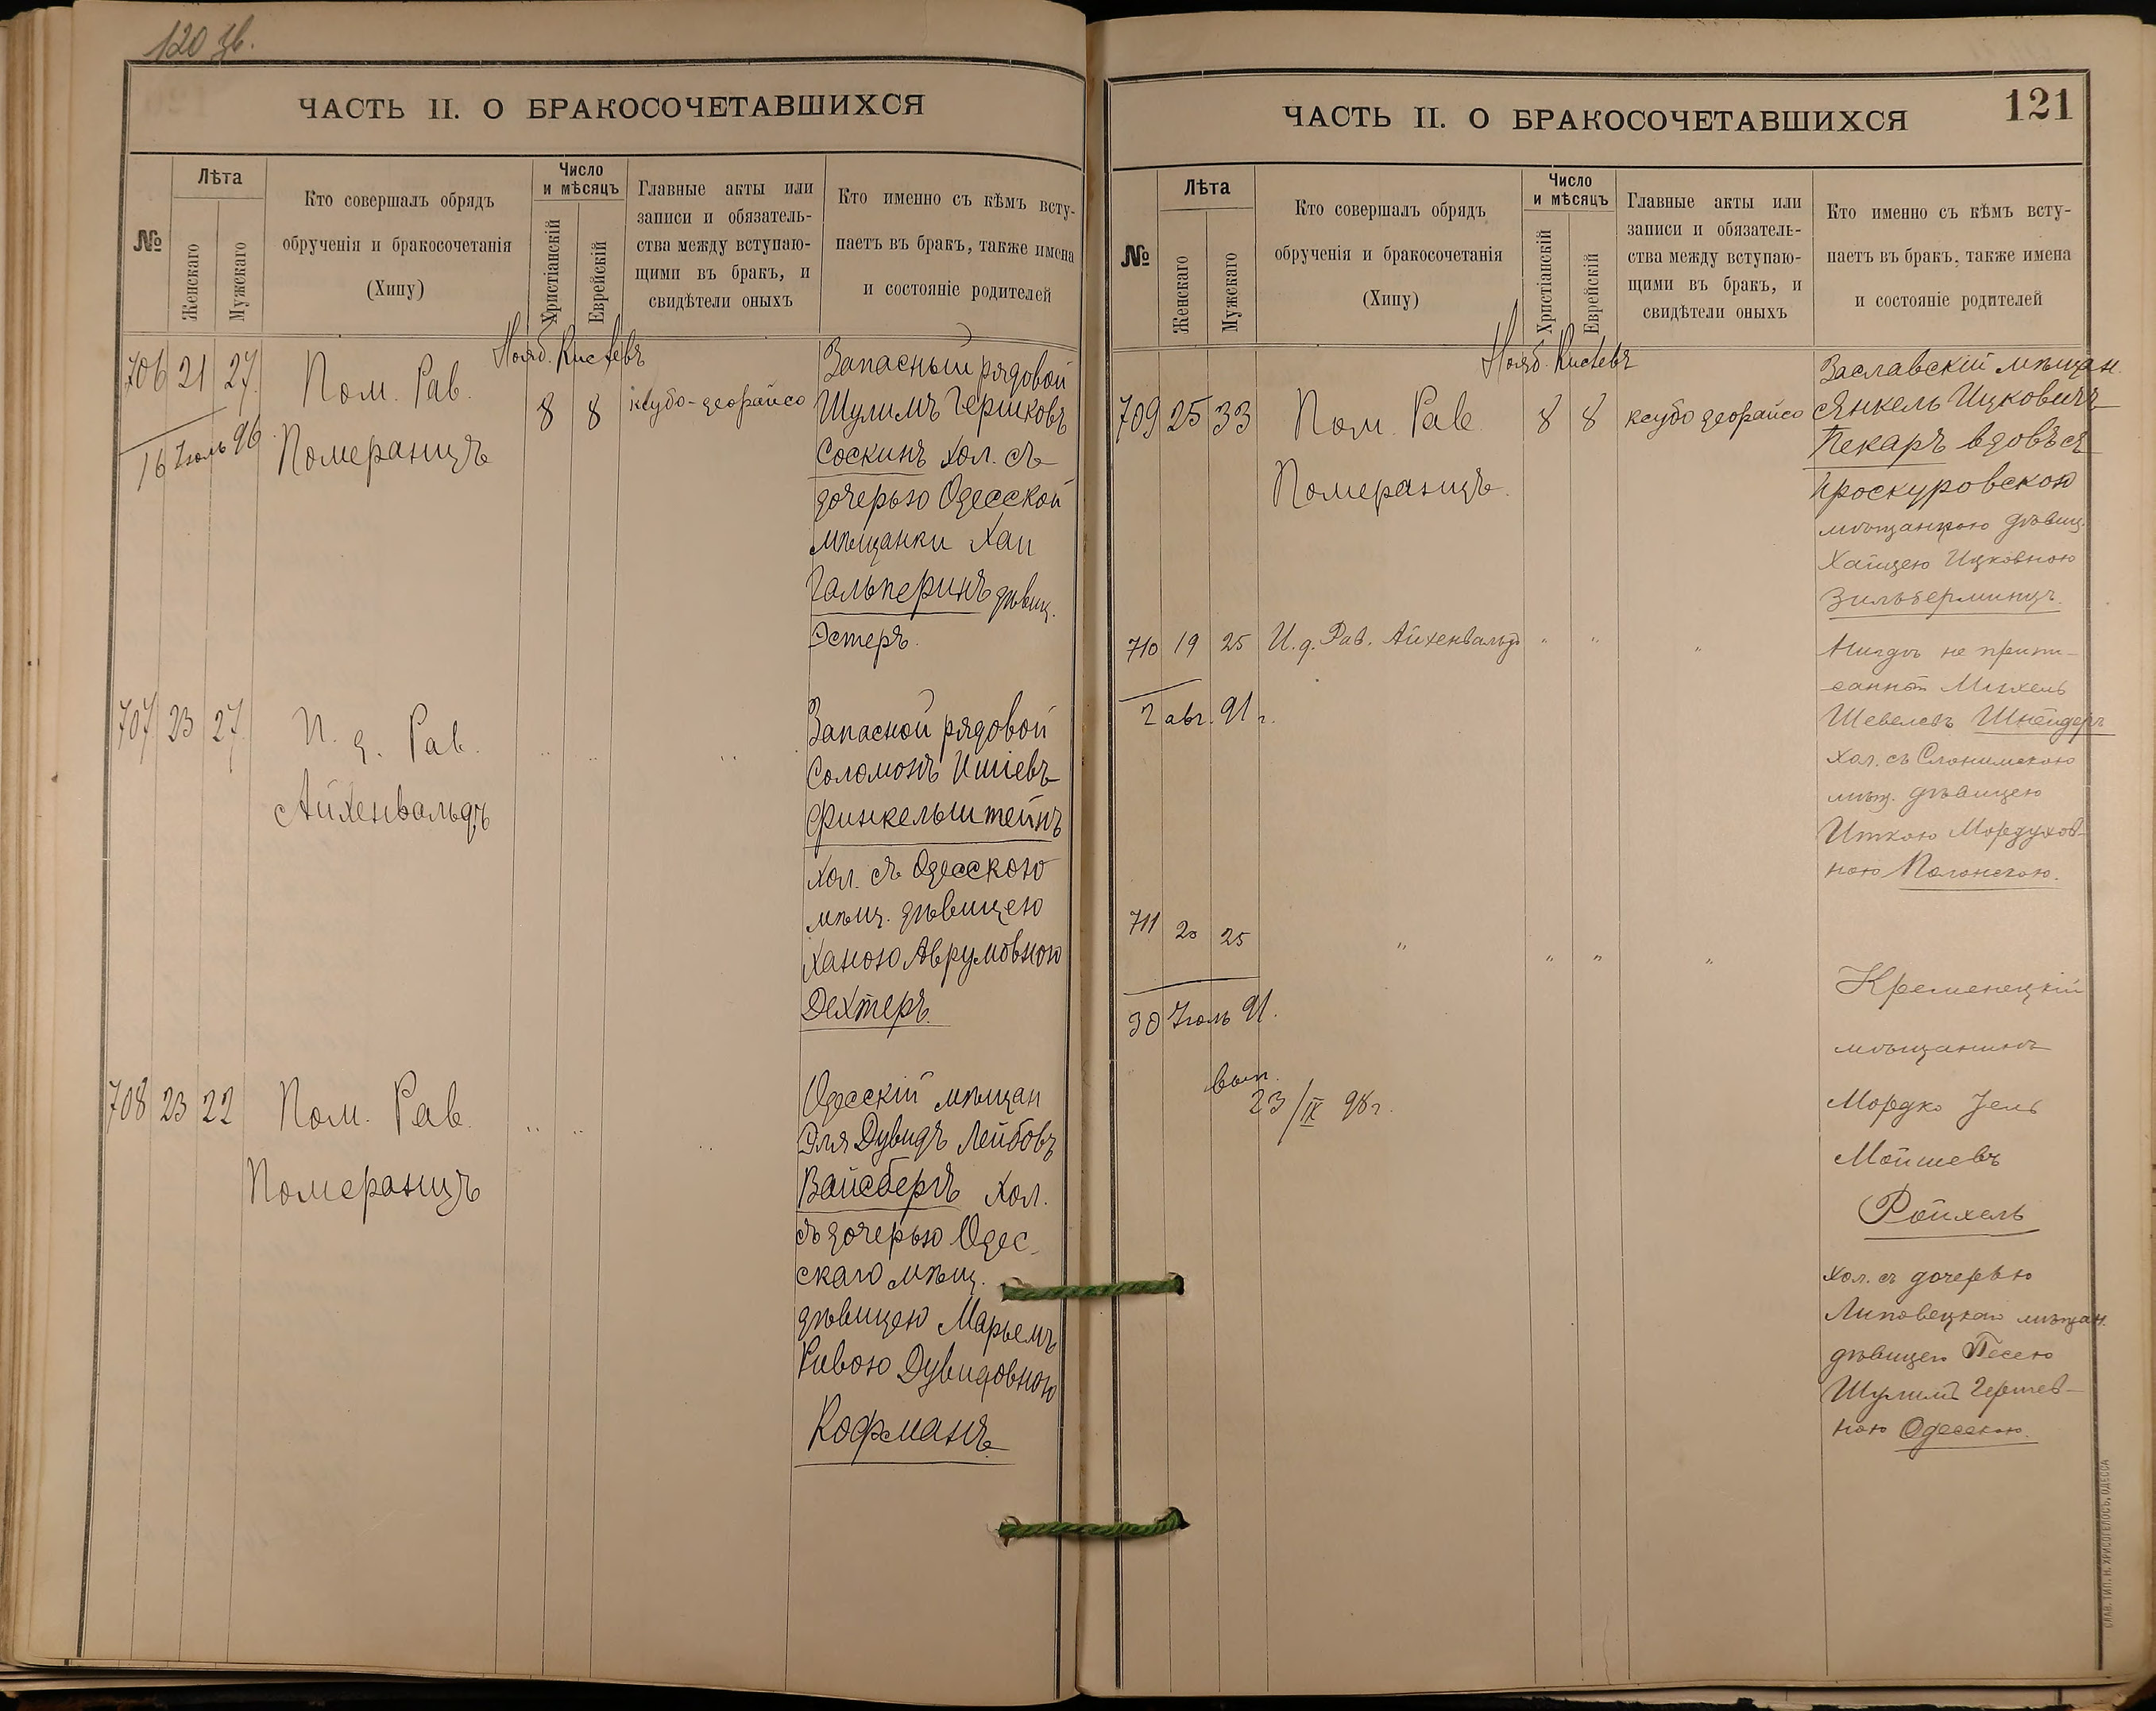 120 зв.
ЧАСТЬ II. О БРАКОСОЧЕТАВШИХСЯ
№
Лѣта
Женскаго
Мужскаго
Кто совершалъ обрядъ
обрученія и бракосочетанія
(Хипу)
Число
и мѣсяцъ
Христіанскій
Еврейскій
Главные акты или
записи и обязатель-
ства между вступаю-
щими въ бракъ, и
свидѣтели оныхъ
Кто именно съ кѣмъ всту-
паетъ въ бракъ, также имена
и состояніе родителей
Нояб. Кислевъ
706 21 27
Пом. Рав.
Померанцъ
8 8
ксубо-деорайсо
16 Іюль 96
Запасный рядовой
Шулимъ Гершковъ
Соскинъ хол. съ
дочерью Одесской
мѣщанки Хаи
Гальперинъ дѣвиц.
Эстеръ.
707 23 27
И. д. Рав.
Айхенвальдъ
" " "
Запасной рядовой
Соломонъ Ишіевъ
Финкельштейнъ
хол. съ Одесскою
мѣщ. дѣвицею
Ханою Аврумовною
Дехтеръ.
708 23 22
Пом. Рав.
Померанцъ
" " "
Одесскій мѣщан
Эля Дувидъ Лейбовъ
Вайсбергъ хол.
съ дочерью Одес-
скаго мѣщ.
дѣвицею Марьемъ
Ривою Дувидовною
Кофманъ.
ЧАСТЬ II. О БРАКОСОЧЕТАВШИХСЯ
121
№
Лѣта
Женскаго
Мужскаго
Кто совершалъ обрядъ
обрученія и бракосочетанія
(Хипу)
Число
и мѣсяцъ
Христіанскій
Еврейскій
Главные акты или
записи и обязатель-
ства между вступаю-
щими въ бракъ, и
свидѣтели оныхъ
Кто именно съ кѣмъ всту-
паетъ въ бракъ, также имена
и состояніе родителей
Нояб. Кислевъ
709 25 33
Пом. Рав.
Померанцъ.
8 8
ксубо деорайсо
Заславскій мѣщан.
Янкель Ицковичъ
Пекаръ вдовъ съ
Проскуровскою
мѣщанкою дѣвиц.
Хайцею Ицковною
Зильберминцъ.
710 19 25 И. д. Рав. Айхенвальдъ " " "
2 авг. 91 г.
Нигдѣ не припи-
санной Михель
Шевелевъ Шнейдеръ
хол. съ Слонимскою
мѣщ. дѣвицею
Иткою Мордухов-
ною Полонскою.
711 20 25 " " " "
30 Іюль 91.
вып.
23/IX 98 г.
Кременецкій
мѣщанинъ
Мордко Зель
Мойшевъ
Ройхель
хол. съ дочерью
Липовецкаго мѣщан.
дѣвицею Песею
Шулимъ Гершев-
ною Одесскою.
СЛАВ. ТИП. Н. ХРИСОГЕЛОСЪ, ОДЕССА